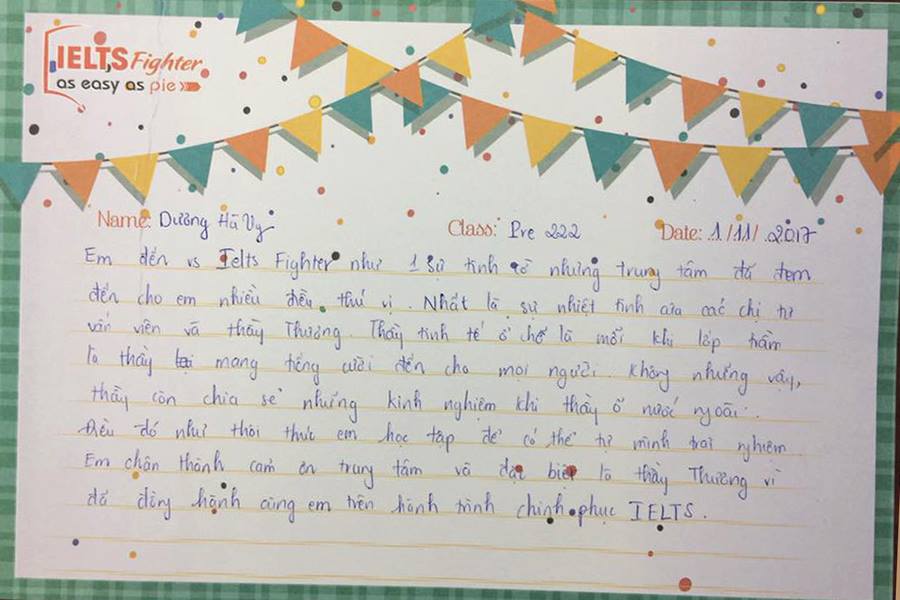 IELTS Fighter
as easy as pie
Name: Dương Hà Vy Class: Pre 222 Date: 1/11/2017
Em đến vs Ielts Fighter như 1 sự tình cờ nhưng trung tâm đã đem
đến cho em nhiều điều thú vị. Nhất là sự nhiệt tình của các chị tư
vấn viên và thầy Thương. Thầy tinh tế ở chỗ là mỗi khi lớp trầm
là thầy lại mang tiếng cười đến cho mọi người. Không những vậy,
thầy còn chia sẻ những kinh nghiệm khi thầy ở nước ngoài.
Điều đó như thôi thúc em học tập để có thể tự mình trải nghiệm
Em chân thành cảm ơn trung tâm và đặc biệt là thầy Thương vì
đã đồng hành cùng em trên hành trình chinh phục IELTS.